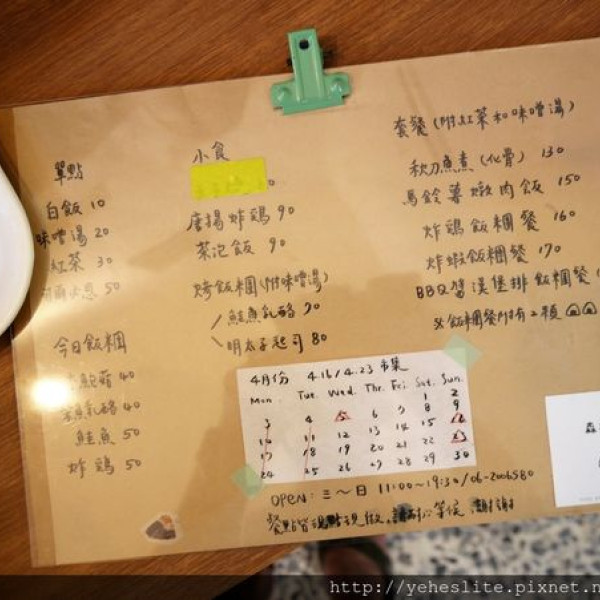 單點
白飯 10
味噌湯 20
紅茶 30
50
今日飯糰
鮑菇 40
魚乳酪 40
鮭魚 50
炸鷄 50
小食
唐揚炸鷄 90
茶泡飯 90
烤飯糰(附味噌湯)
鮭魚乳酪 90
明太子起司 80
套餐(附紅茶和味噌湯)
秋刀魚煮(化骨) 130
馬鈴薯燉肉飯 150
炸鷄飯糰餐 160
炸蝦飯糰餐 170
BBQ醬漢堡排飯糰餐
※飯糰餐附有2顆
4月份 4.16/4.23 市集
Mon. Tue. Wed. Thr. Fri. Sat. Sun.
1 2
3 4 5 6 7 8 9
10 11 12 13 14 15 16
17 18 19 20 21 22 23
24 25 26 27 28 29 30
OPEN: 三~日 11:00~19:30/06-2006580
餐點皆現點現做,請耐心等候 謝謝
森
http://yeheslite.pixnet.n